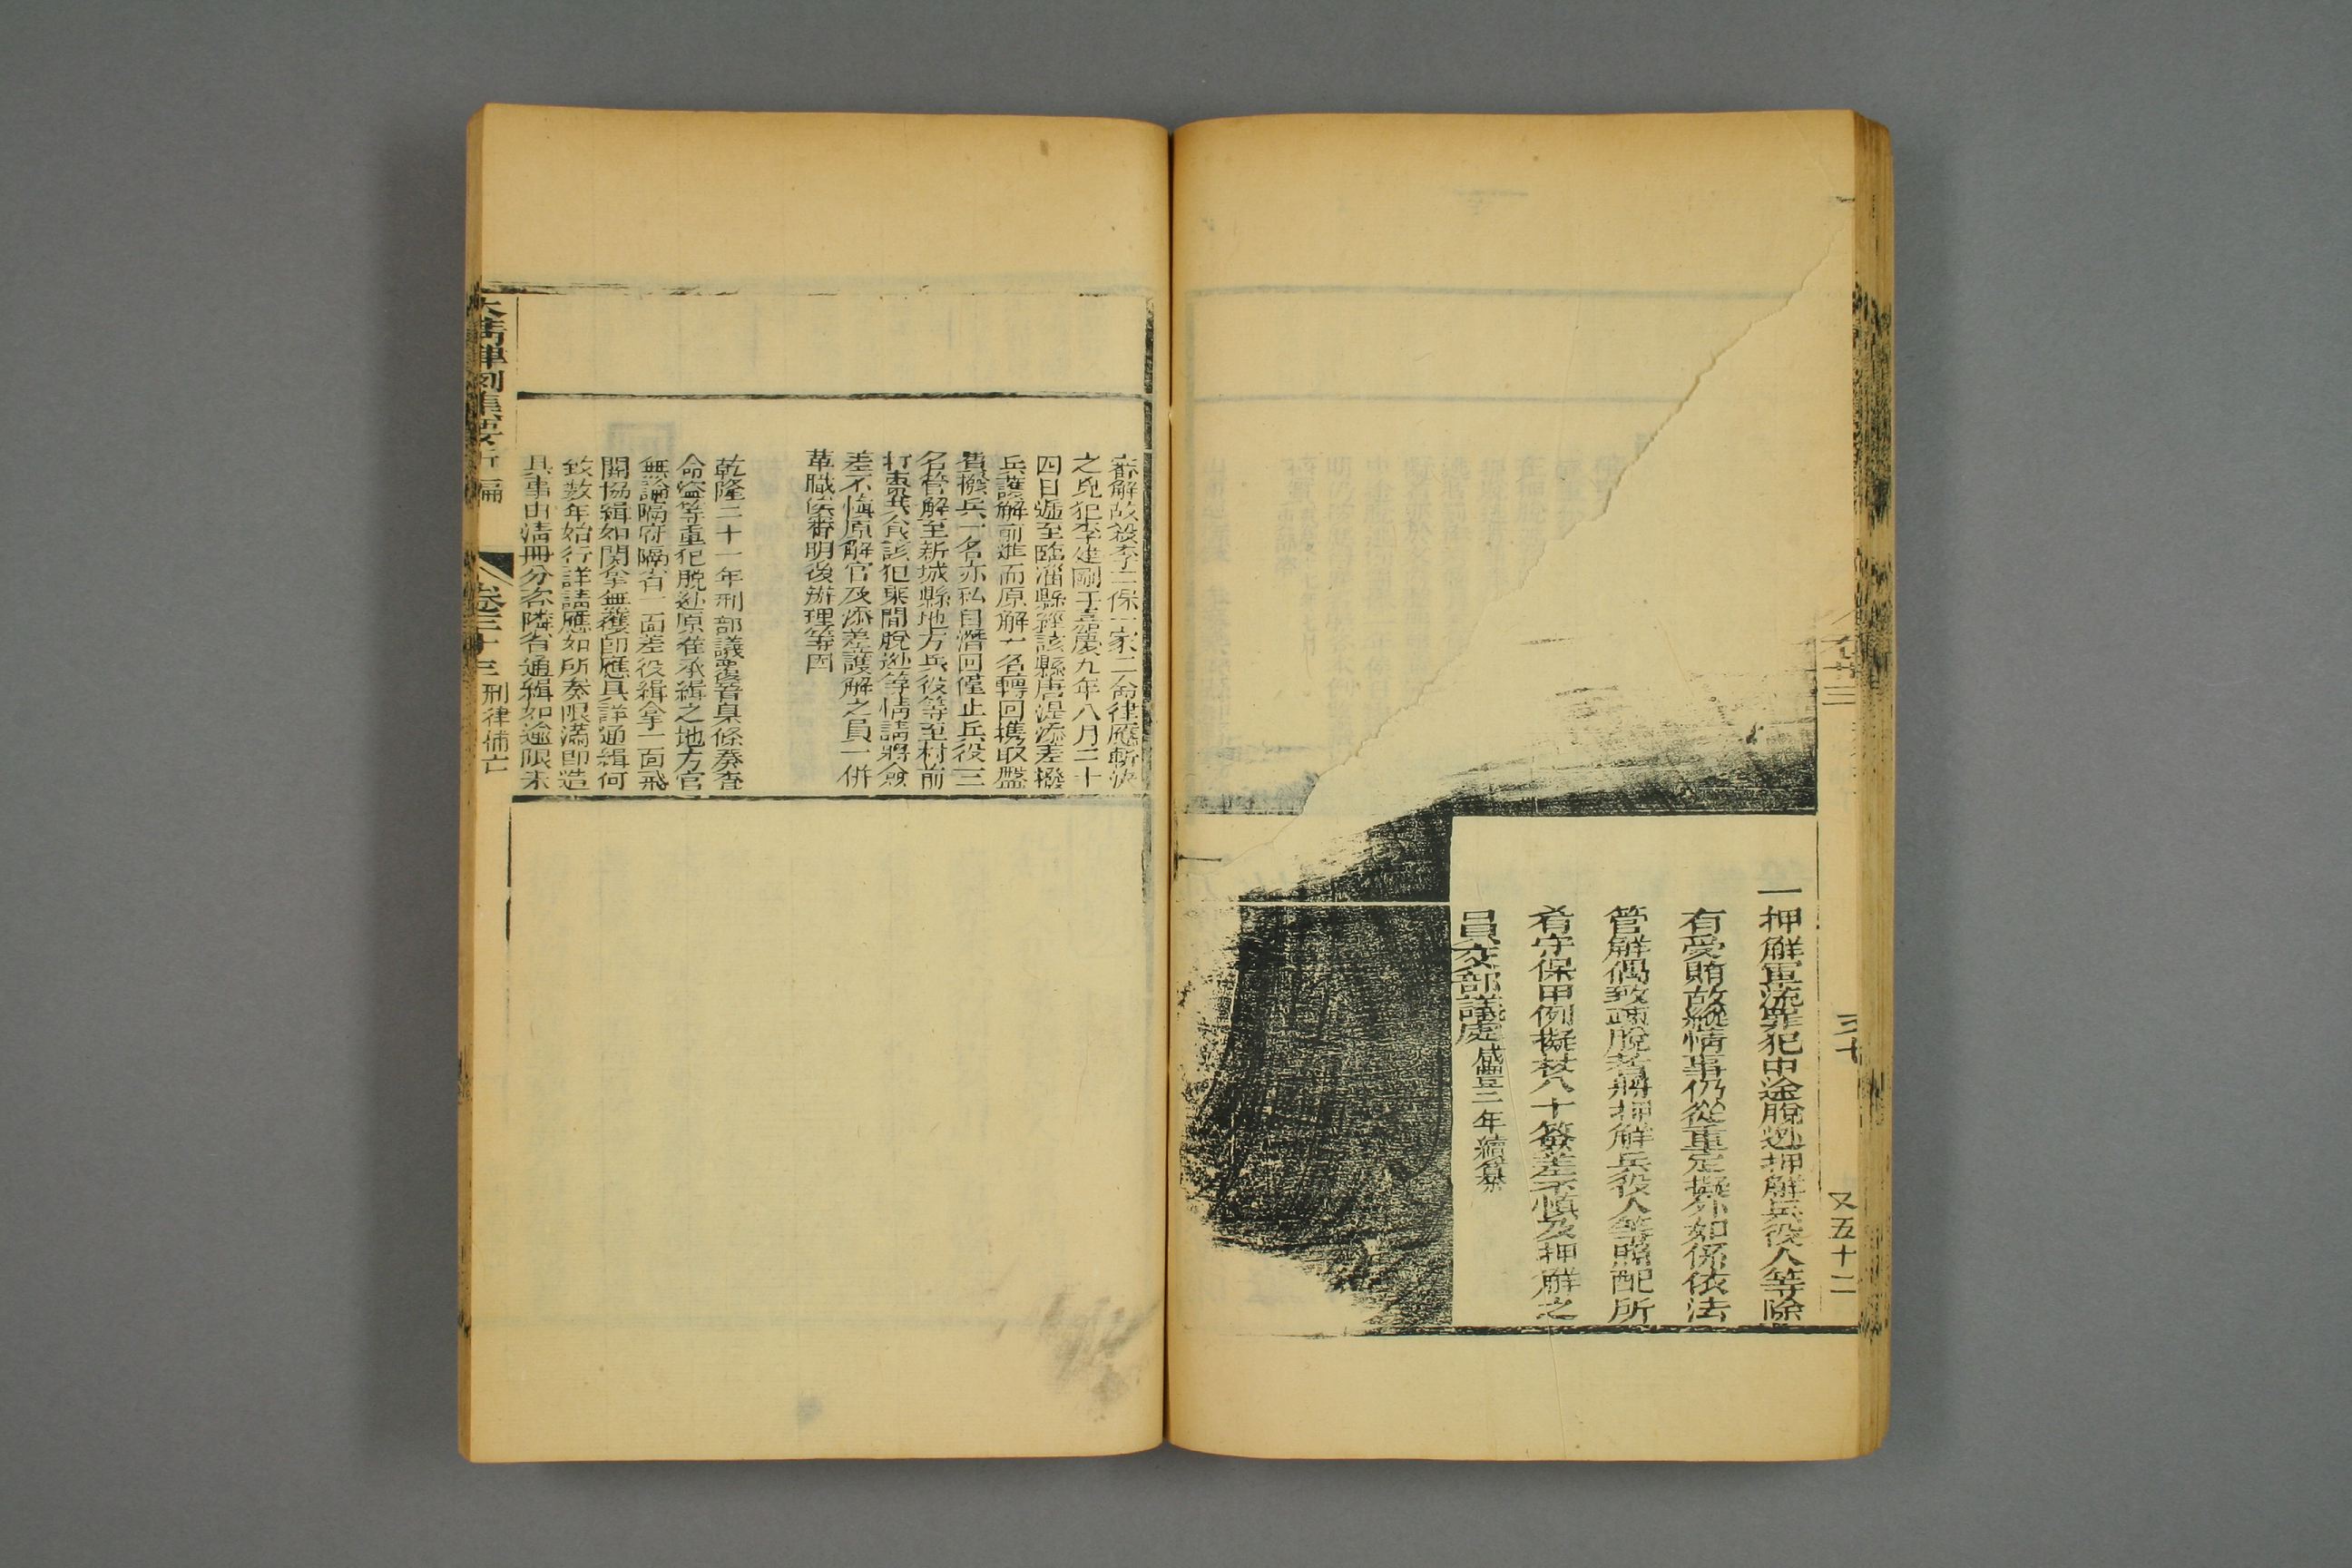 又五十二
一押解軍流罪犯中途脫逃押解兵役人等除
有受賄故縱情事仍從重定擬外如係依法
管解偶致疎脫者將押解兵役人等照配所
看守保甲例擬杖八十簽差不慎及押解之
員交部議處咸豐二年續纂
審解故殺李二保一家二命律應斬決
之兇犯李建剛于嘉慶九年八月二十
四日遞至臨淄縣經該縣唐湜添差撥
兵護解前進而原解一名轉回攜取盤
費撥兵一名亦私自潛回僅止兵役三
名管解至新城縣地方兵役等至村前
打棗共食該犯乘間脫逃等情請將僉
差不慎原解官及添差護解之員一併
革職俟審明後辦理等因
乾隆二十一年刑部議覆晉臬條奏查
命盜等重犯脫逃原在承緝之地方官
無論隔府隔省一面差役緝拿一面飛
關協緝如関拿無獲即應具詳通緝何
致数年始行詳請應如所奏限滿即造
具事由清冊分咨隣省通緝如逾限未
大清律例集要新編 卷三十三 刑律捕亡